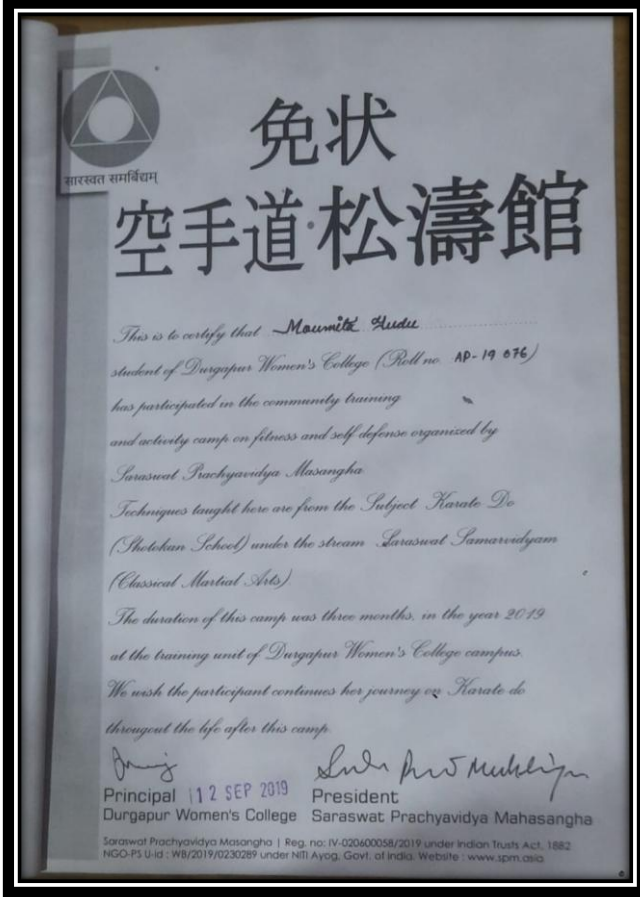 सारस्वत समर्बिद्यम्
免状
空手道・松濤館
This is to certify that Moumita
student of Durgapur Women's College (Roll no. AP-19 076)
has participated in the community training
and activity camp on fitness and self defense organized by
Saraswat Prachyavidya Masangha
Techniques taught here are from the Subject Karate Do
(Shotokan School) under the stream Saraswat Samarvidyam
(Classical Martial Arts)
The duration of this camp was three months, in the year 2019
at the training unit of Durgapur Women's College campus.
We wish the participant continues her journey on Karate do
througout the life after this camp.
Principal 12 SEP 2019 President
Durgapur Women's College Saraswat Prachyavidya Mahasangha
Saraswat Prachyavidya Masangha | Reg. no: IV-020600058/2019 under Indian Trusts Act, 1882
NGO-PS U-id : WB/2019/0230289 under NITI Ayog, Govt. of India. Website : www.spm.asia